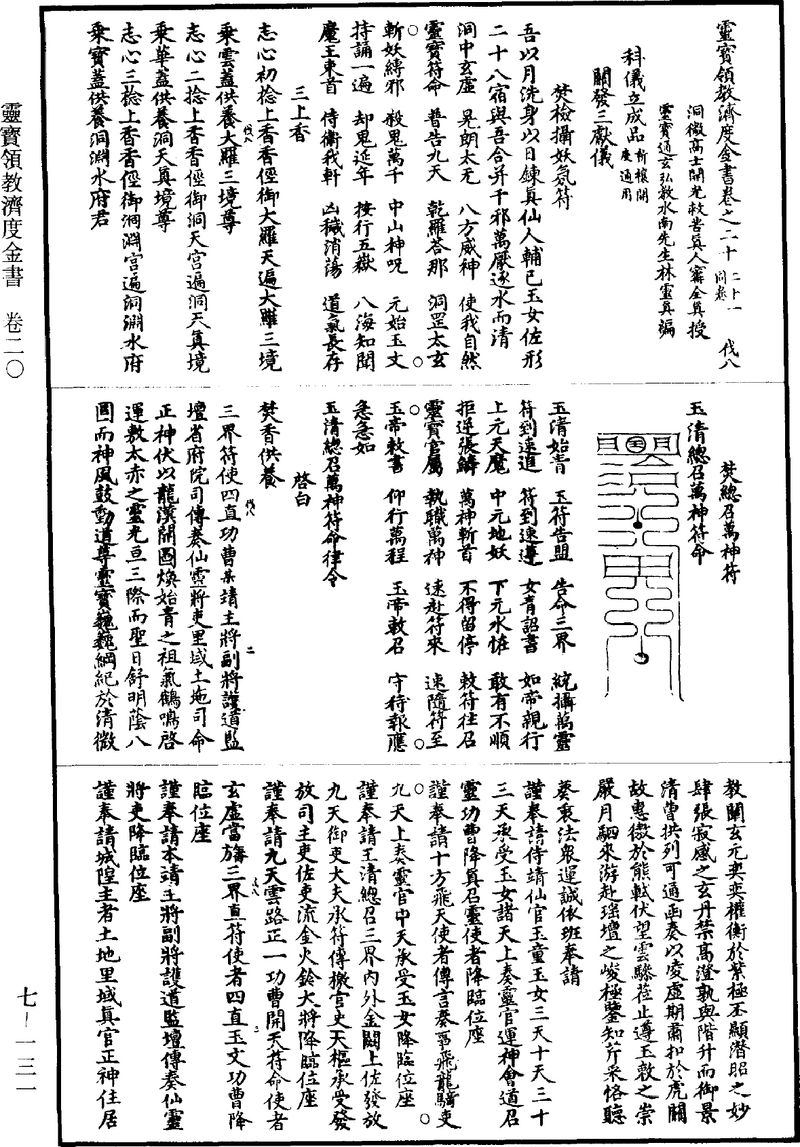 靈寶領教濟度金書卷之二十 二十一同卷 伐八
洞微高士開光救苦眞人甯全眞授
靈寶通玄弘教水南先生林靈眞編
科儀立成品 祈禳開度通用
關發三獻儀
焚檢攝妖氛符
吾以月洗身以日鍊眞仙人輔已玉女佐形
二十八宿與吾合并千邪萬厭逐水而清
洞中玄虛 晃朗太元 八方威神 使我自然
靈寶符命 普告九天 乾羅荅那 洞罡太玄
斬妖縛邪 殺鬼萬千 中山神呪 元始玉文
持誦一遍 却鬼延年 按行五嶽 八海知聞
魔王束首 侍衛我軒 凶穢消蕩 道氣長存
三上香
志心初捻上香香徑御大羅天遍大羅三境
乘雲蓋供養大羅三境尊
志心二捻上香香徑御洞天宮遍洞天眞境
乘華蓋供養洞天眞境尊
志心三捻上香香徑御洞淵宮遍洞淵水府
乘寶蓋供養洞淵水府君
焚總召萬神符
玉清總召萬神符命
玉清始青 玉符告盟 告命三界 統攝萬靈
符到速追 符到速遵 女青詔書 如帝親行
上元天魔 中元地妖 下元水怪 敢有不順
拒逆張鱗 萬神斬首 不得留停 敕符往召
靈寶官屬 執職萬神 速赴符來 速隨符至
玉帝敕書 仰行萬程 玉帝敕召 守待報應
急急如
玉清總召萬神符命律令
啓白
焚香供養
三界符使四直功曹某靖主將副將護道監
壇省府院司傳奏仙靈將吏里域土地司命
正神伏以龍漢開圖煥始青之祖氣鶴鳴啓
運敷太赤之靈光亘三際而聖日舒明蔭八
圓而神風鼓動道尊靈寶巍巍綱紀於清微
教闡玄元奕奕權衡於紫極丕顯潛昭之妙
肆張寂感之玄丹禁高澄孰與階升而御景
清曹拱列可通函奏以凌虛期肅扣於虎關
故惠徼於熊軾伏望雲驂莅止遵玉敕之崇
嚴月駟來游赴瑤壇之峻極鑒知芹采恪聽
葵衷法衆運誠依班奉請
謹奉請侍靖仙官玉童玉女三天十天三十
三天承受玉女諸天上奏靈官運神會道召
靈功曹降眞召靈使者降臨位座
謹奉請十方飛天使者傳言奏事飛龍騎吏
九天上奏靈官中天承受玉女降臨位座
謹奉請玉清總召三界內外金闕上佐發放
九天御吏大夫承符傳檄官吏天樞承受發
放司主吏佐吏流金火鈴大將降臨位座
謹奉請九天雲路正一功曹開天符命使者
玄虛當旛三界直符使者四直玉文功曹降
臨位座
謹奉請本靖主將副將護道監壇傳奏仙靈
將吏降臨位座
謹奉請城隍主者土地里域眞官正神住居
靈寶領教濟度金書 卷二〇
七－一三一